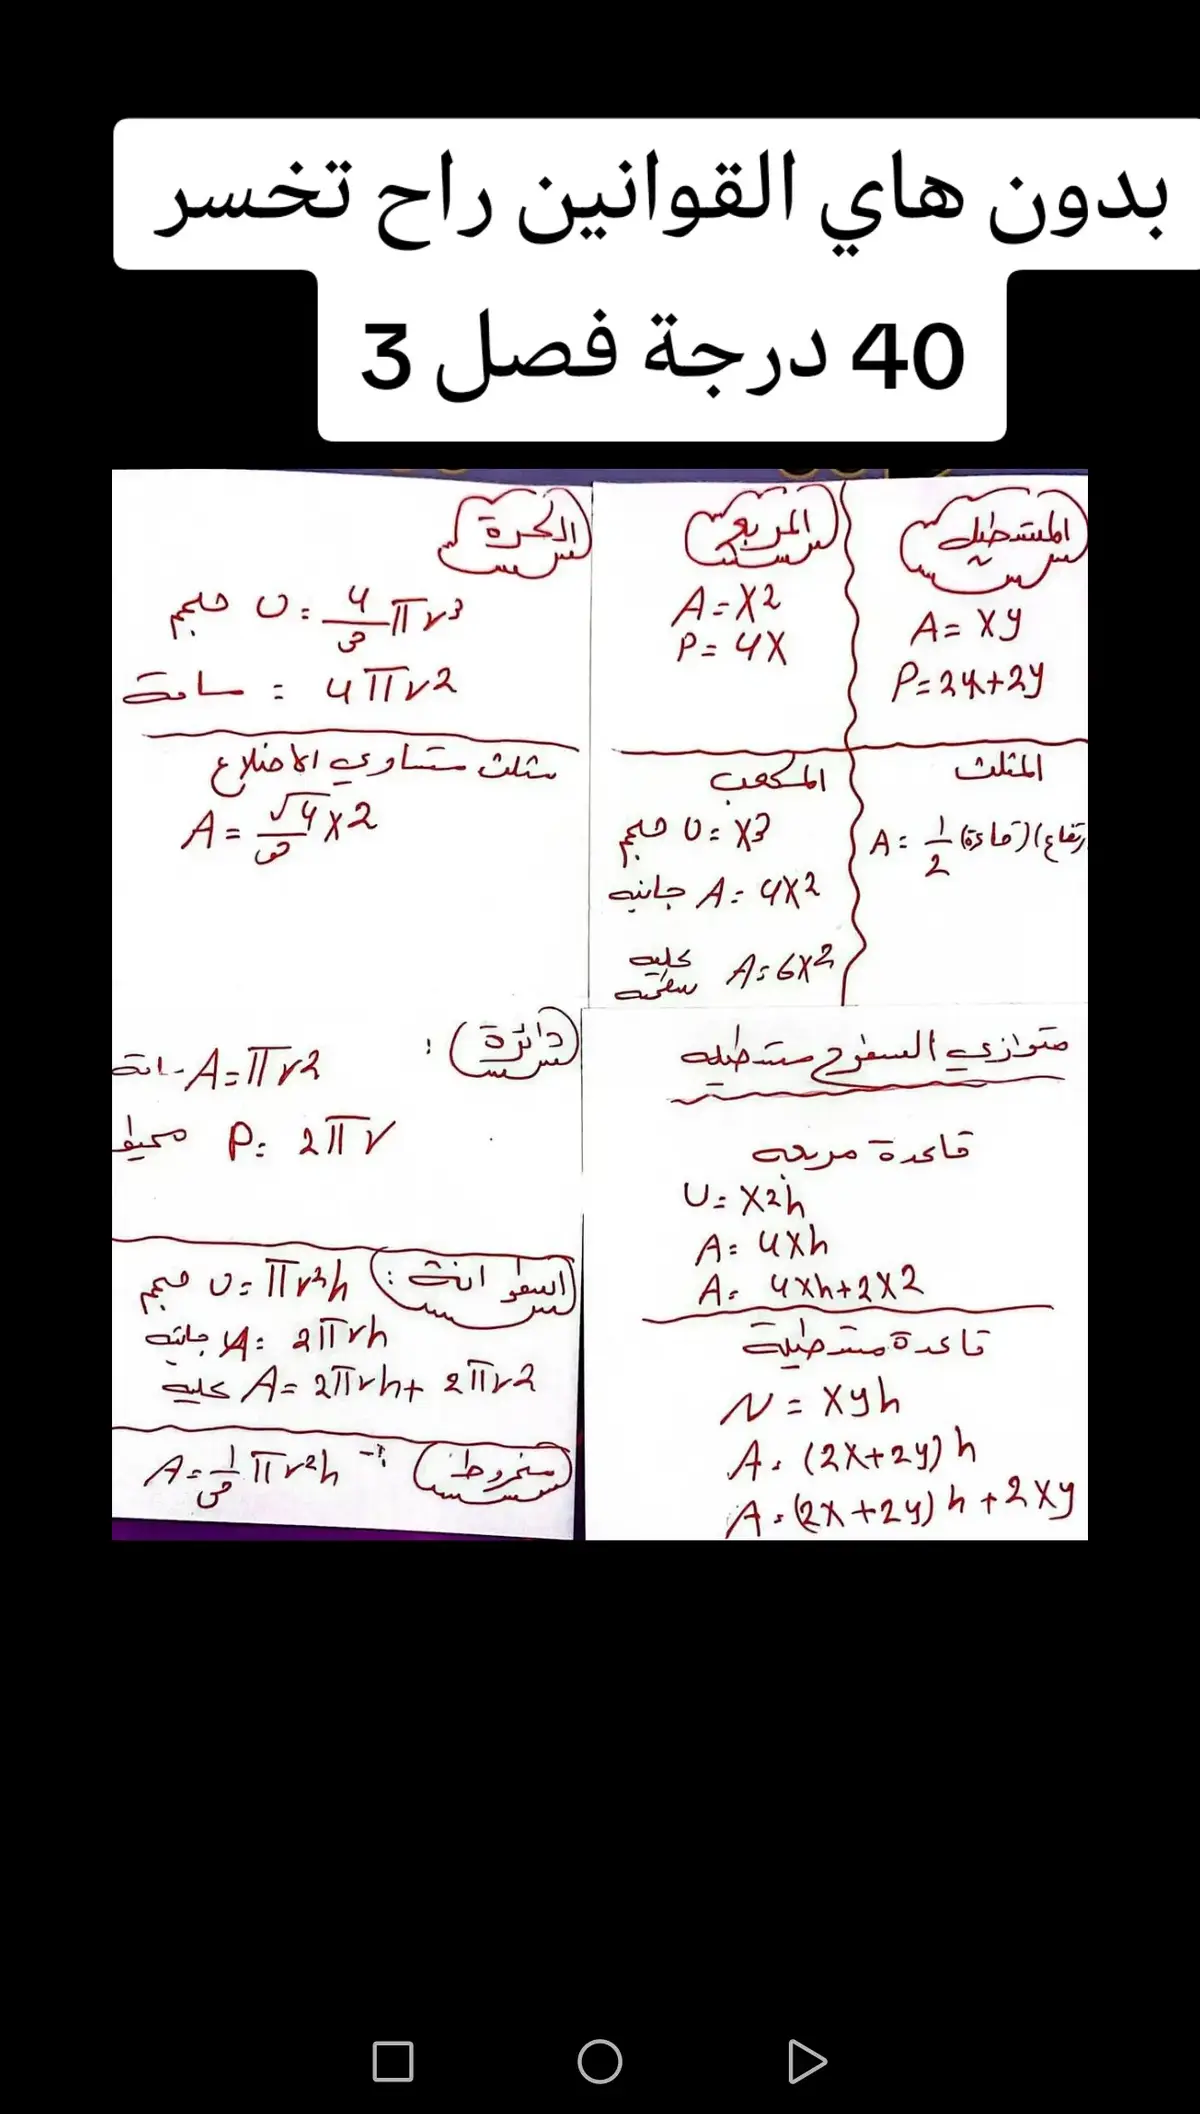 بدون هاي القوانين راح تخسر
40 درجة فصل 3
المستطيل
A = xy
P = 2x + 2y
المربع
A = x2
P = 4x
الكرة
حجم υ = 4/3 πr3
مساحة = 4πr2
المثلث
A = 1/2 (قاعدة)(ارتفاع
المكعب
حجم υ = x3
جانبيه A = 4x2
كليه
سطحيه A = 6x2
مثلث متساوي الاضلاع
A = √4/3 x2
متوازي السطوح مستطيله
قاعدة مربعه
υ = x2h
A = 4xh
A = 4xh + 2x2
قاعدة مستطيلة
N = xyh
A = (2x + 2y) h
A = (2x + 2y) h + 2xy
دائرة :
A = πr2
محيط P = 2πr
اسطوانة :
حجم υ = πr2h
جانبيه A = 2πrh
كليه A = 2πrh + 2πr2
مخروط :-
A = 1/3 πr2h